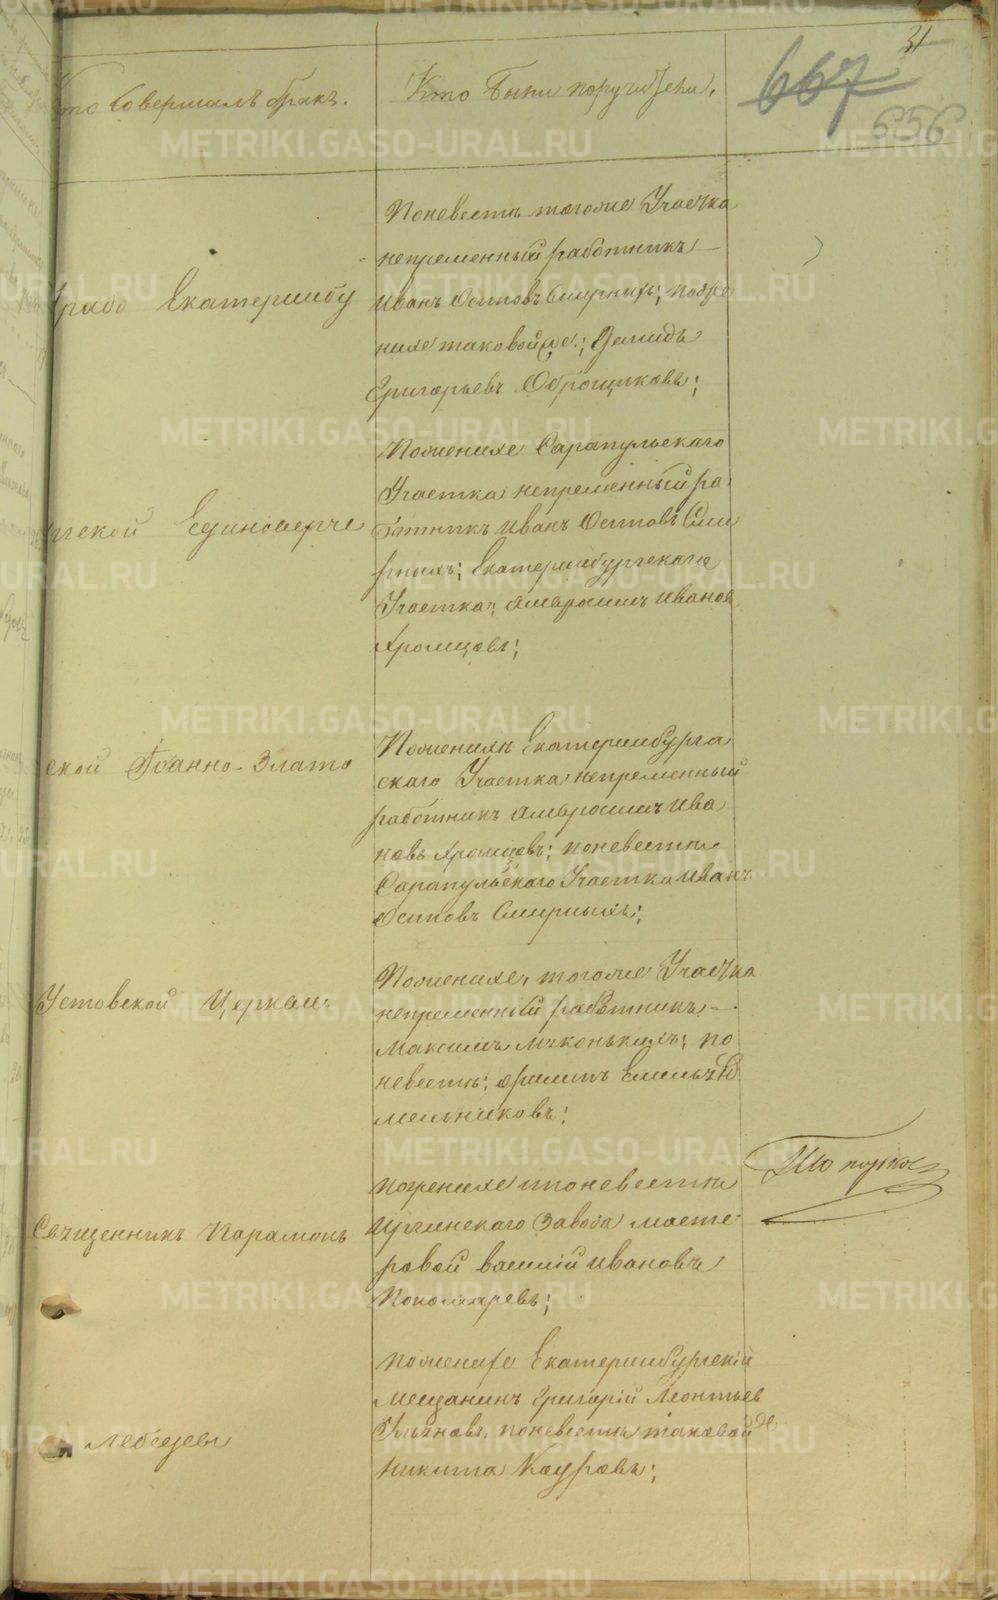 31
667
656
Кто совершалъ бракъ.
Кто были поручители.
Граво Екатеринбу
Поневесте тогоже Участка
непременный работникъ
Иванъ Осиповъ Смирныхъ; пожэ
нихе таковой же; Демидъ
Григорьевъ Оброщиковъ;
ргской Единоверче
Поженихе Сарапульскаго
Участка непременный ра
ботникъ Иванъ Осиповъ Сми
рныхъ; Екатеринбургскаго
Участка; Амвросимъ Иванов
Хромцовъ;
ской Іоанно-Злато
Пожених Екатеринбурга
скаго Участка непременный
работникъ Амвросимъ Ива
новъ Хромцовъ; поневесте
Сарапульскаго Участка Иванъ
Осиповъ Смирныхъ;
Устовской Церкви
Пожених, тогоже Участка
непременный работникъ
Максимъ; по
невесте;
Мельниковъ;
Священникъ Парамонъ
Пожених и поневесте
Иргинскаго Завода масте
ровой Василій Ивановъ
Пономаревъ;
Лебедевъ
Пожених Екатеринбургскій
Мещанинъ Григорій Леонтьев
поневесте таковой же
Никита Кауровъ;